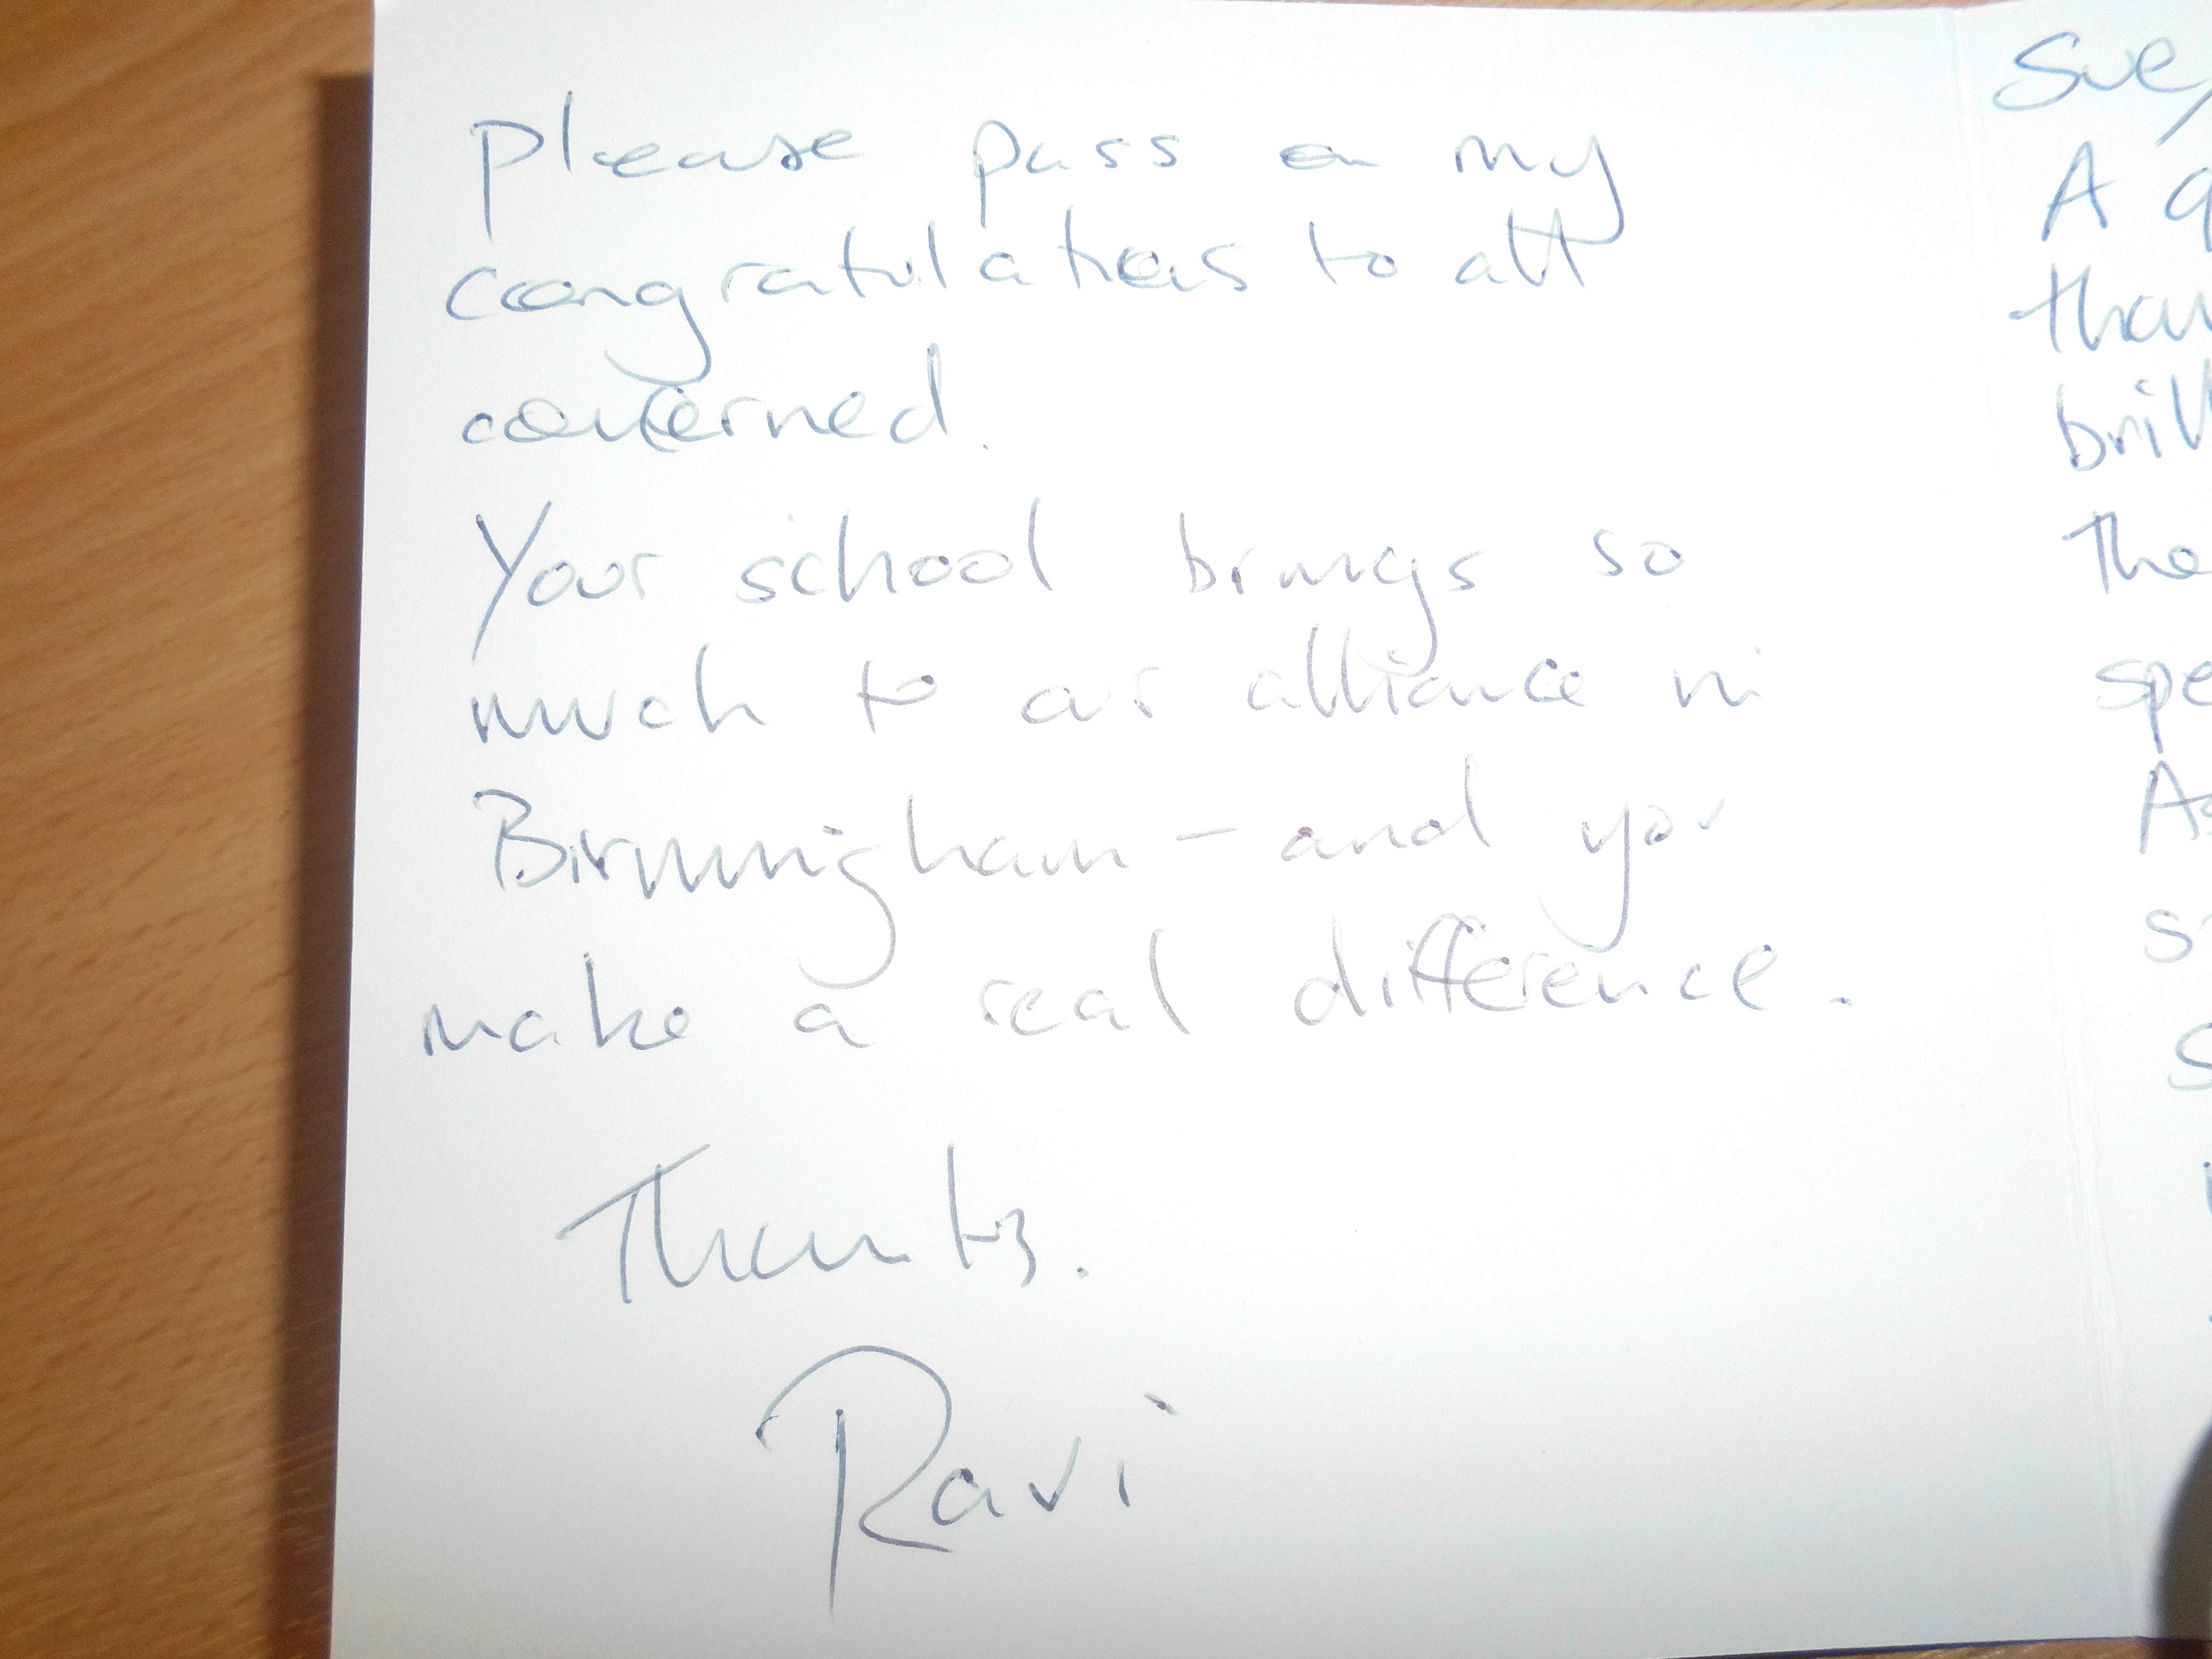 Please pass on my
congratulations to all
concerned.
Your school brings so
much to our alliance in
Birmingham – and you
make a real difference.
Thanks.
Ravi
Sue,
A
the